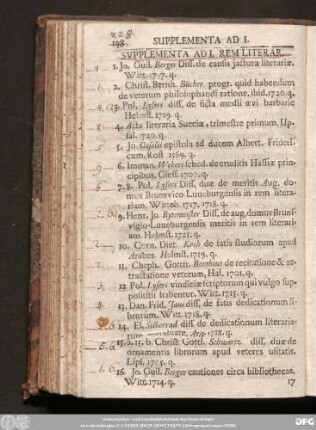 228.
198. SUPPLEMENTA AD I.
SVPPLEMENTA AD I. REM LITERAR.
1. Jo. Guil. Berger Diss. de causis jacturæ literariæ.
Witt. 17-7. q.
2. Christ. Bernh. Bücher progr. quid habendum
de veterum philosophandi ratione. ibid. 1720. q.
3. Pol. Lyseri diss. de ficta medii ævi barbarie
Helmst. 1719. q.
4. Acta literaria Sueciæ, trimestre primum. Up-
sal. 720. q.
5. Jo. Caselii epistola ad ducem Albert. Frideri-
cum. Rost 1569. q.
6. Imman. Weberi sched. de eruditis Hassiæ prin-
cipibus. Giess. 1707. q.
7. 8. Pol. Lyseri Diss. duæ de meritis Aug. do-
mus Brunsvico-Luneburgensis in rem litera-
riam. Witteb. 1717. 1718. q.
9. Henr. Jo. Bytemeister Diss. de aug. domus Bruns-
vigio-Luneburgensis meritis in rem literari-
am. Helmst. 1725. q.
10. Corn. Diet. Koch de fatis studiorum apud
Arabes. Helmst. 1719. q.
11. Chrph. Gottfr. Barthius de recitatione & re-
tractatione veterum. Hal. 1701. q.
12 Pol. Lyseri vindiciæ scriptorum qui vulgo sup-
posititii habentur. Witt. 1715. q.
13. Dan. Frid. Jani diss. de fatis dedicationum li-
brorum. Witt. 1718. q.
14. El. Silberrad diss. de dedicationum literaria-
rum Arg. 1718. q.
15. a. 15. b. Christ Gottl. Schwartz. diss. duæ de
ornamentis librorum apud veteres usitatis.
Lips. 1705. q.
16. Guil. Berger cautiones circa bibliothecas.
Witt. 1714. q. 17